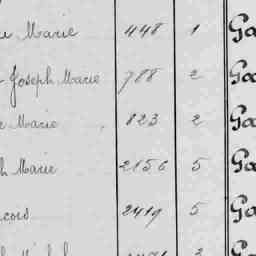 Marie 448 1 Ga
Joseph Marie 788 2 Ga
Marie 823 2 Ga
Marie 2156 5 Ga
2419 5 Ga